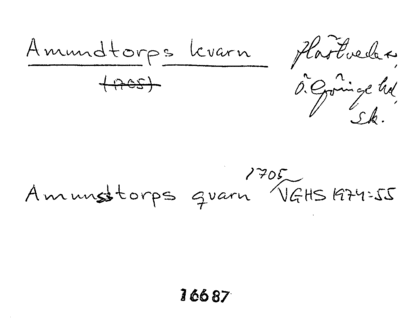 Amundtorps kvarn
Hästveda sn,
(1705)
Ö. Göinge hd,
Sk.
1705
Amunstorps qvarn VGHS 1974:55
16687